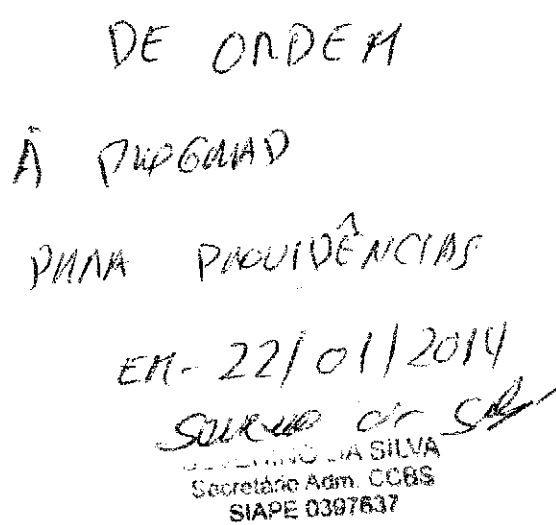 DE ORDEM
À PROGRAD
PARA PROVIDÊNCIAS
EM- 22/01/2014
DA SILVA
Secretário Adm. CCBS
SIAPE 0397637